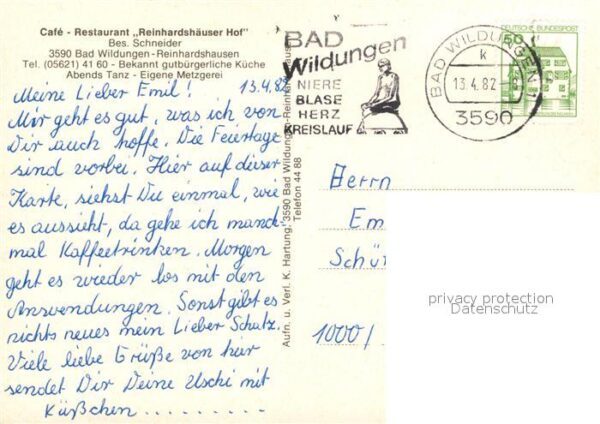 Café - Restaurant „Reinhardshäuser Hof"
Bes. Schneider
3590 Bad Wildungen-Reinhardshausen
Tel. (05621) 41 60 - Bekannt gutbürgerliche Küche
Abends Tanz - Eigene Metzgerei
13.4.82
Meine Lieber Emil!
Mir geht es gut, was ich von
Dir auch hoffe. Die Feiertage
sind vorbei. Hier auf dieser
Karte, siehst Du einmal, wie
es aussieht, da gehe ich manch-
mal Kaffeetrinken. Morgen
geht es wieder los mit den
Anwendungen. Sonst gibt es
nichts neues mein Lieber Schatz.
Viele liebe Grüße von hier
sendet Dir Deine Uschi mit
Küßchen..........
Aufn. u. Verl. K. Hartung, 3590 Bad Wildungen-Reinhardshausen
Telefon 44 88
BAD
Wildungen
NIERE
BLASE
HERZ
KREISLAUF
BAD WILDUNGEN
k
13.4.82
3590
DEUTSCHE BUNDESPOST
50
Herrn
Em
Schü
1000/
privacy protection
Datenschutz